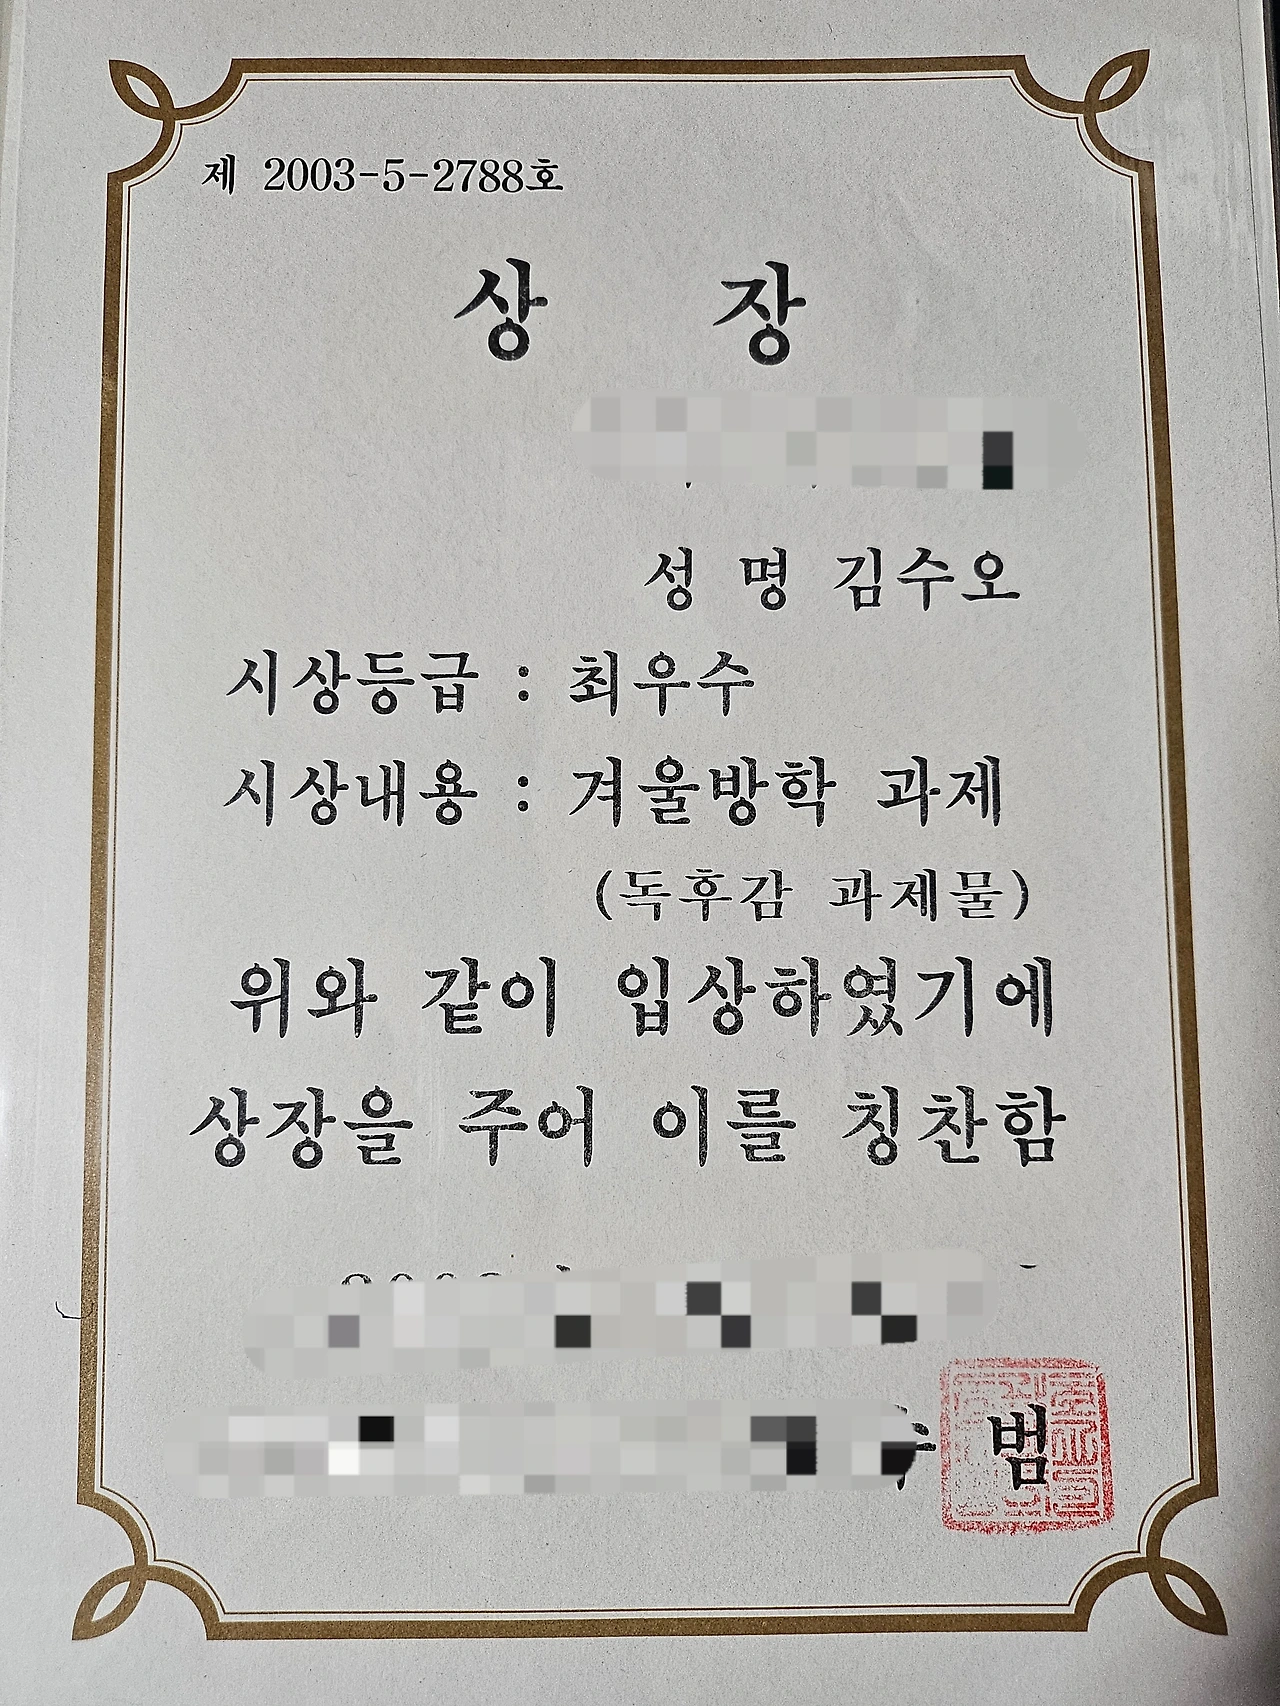 제 2003-5-2788호
상 장
성 명 김수오
시상등급 : 최우수
시상내용 : 겨울방학 과제
(독후감 과제물)
위와 같이 입상하였기에
상장을 주어 이를 칭찬함
범